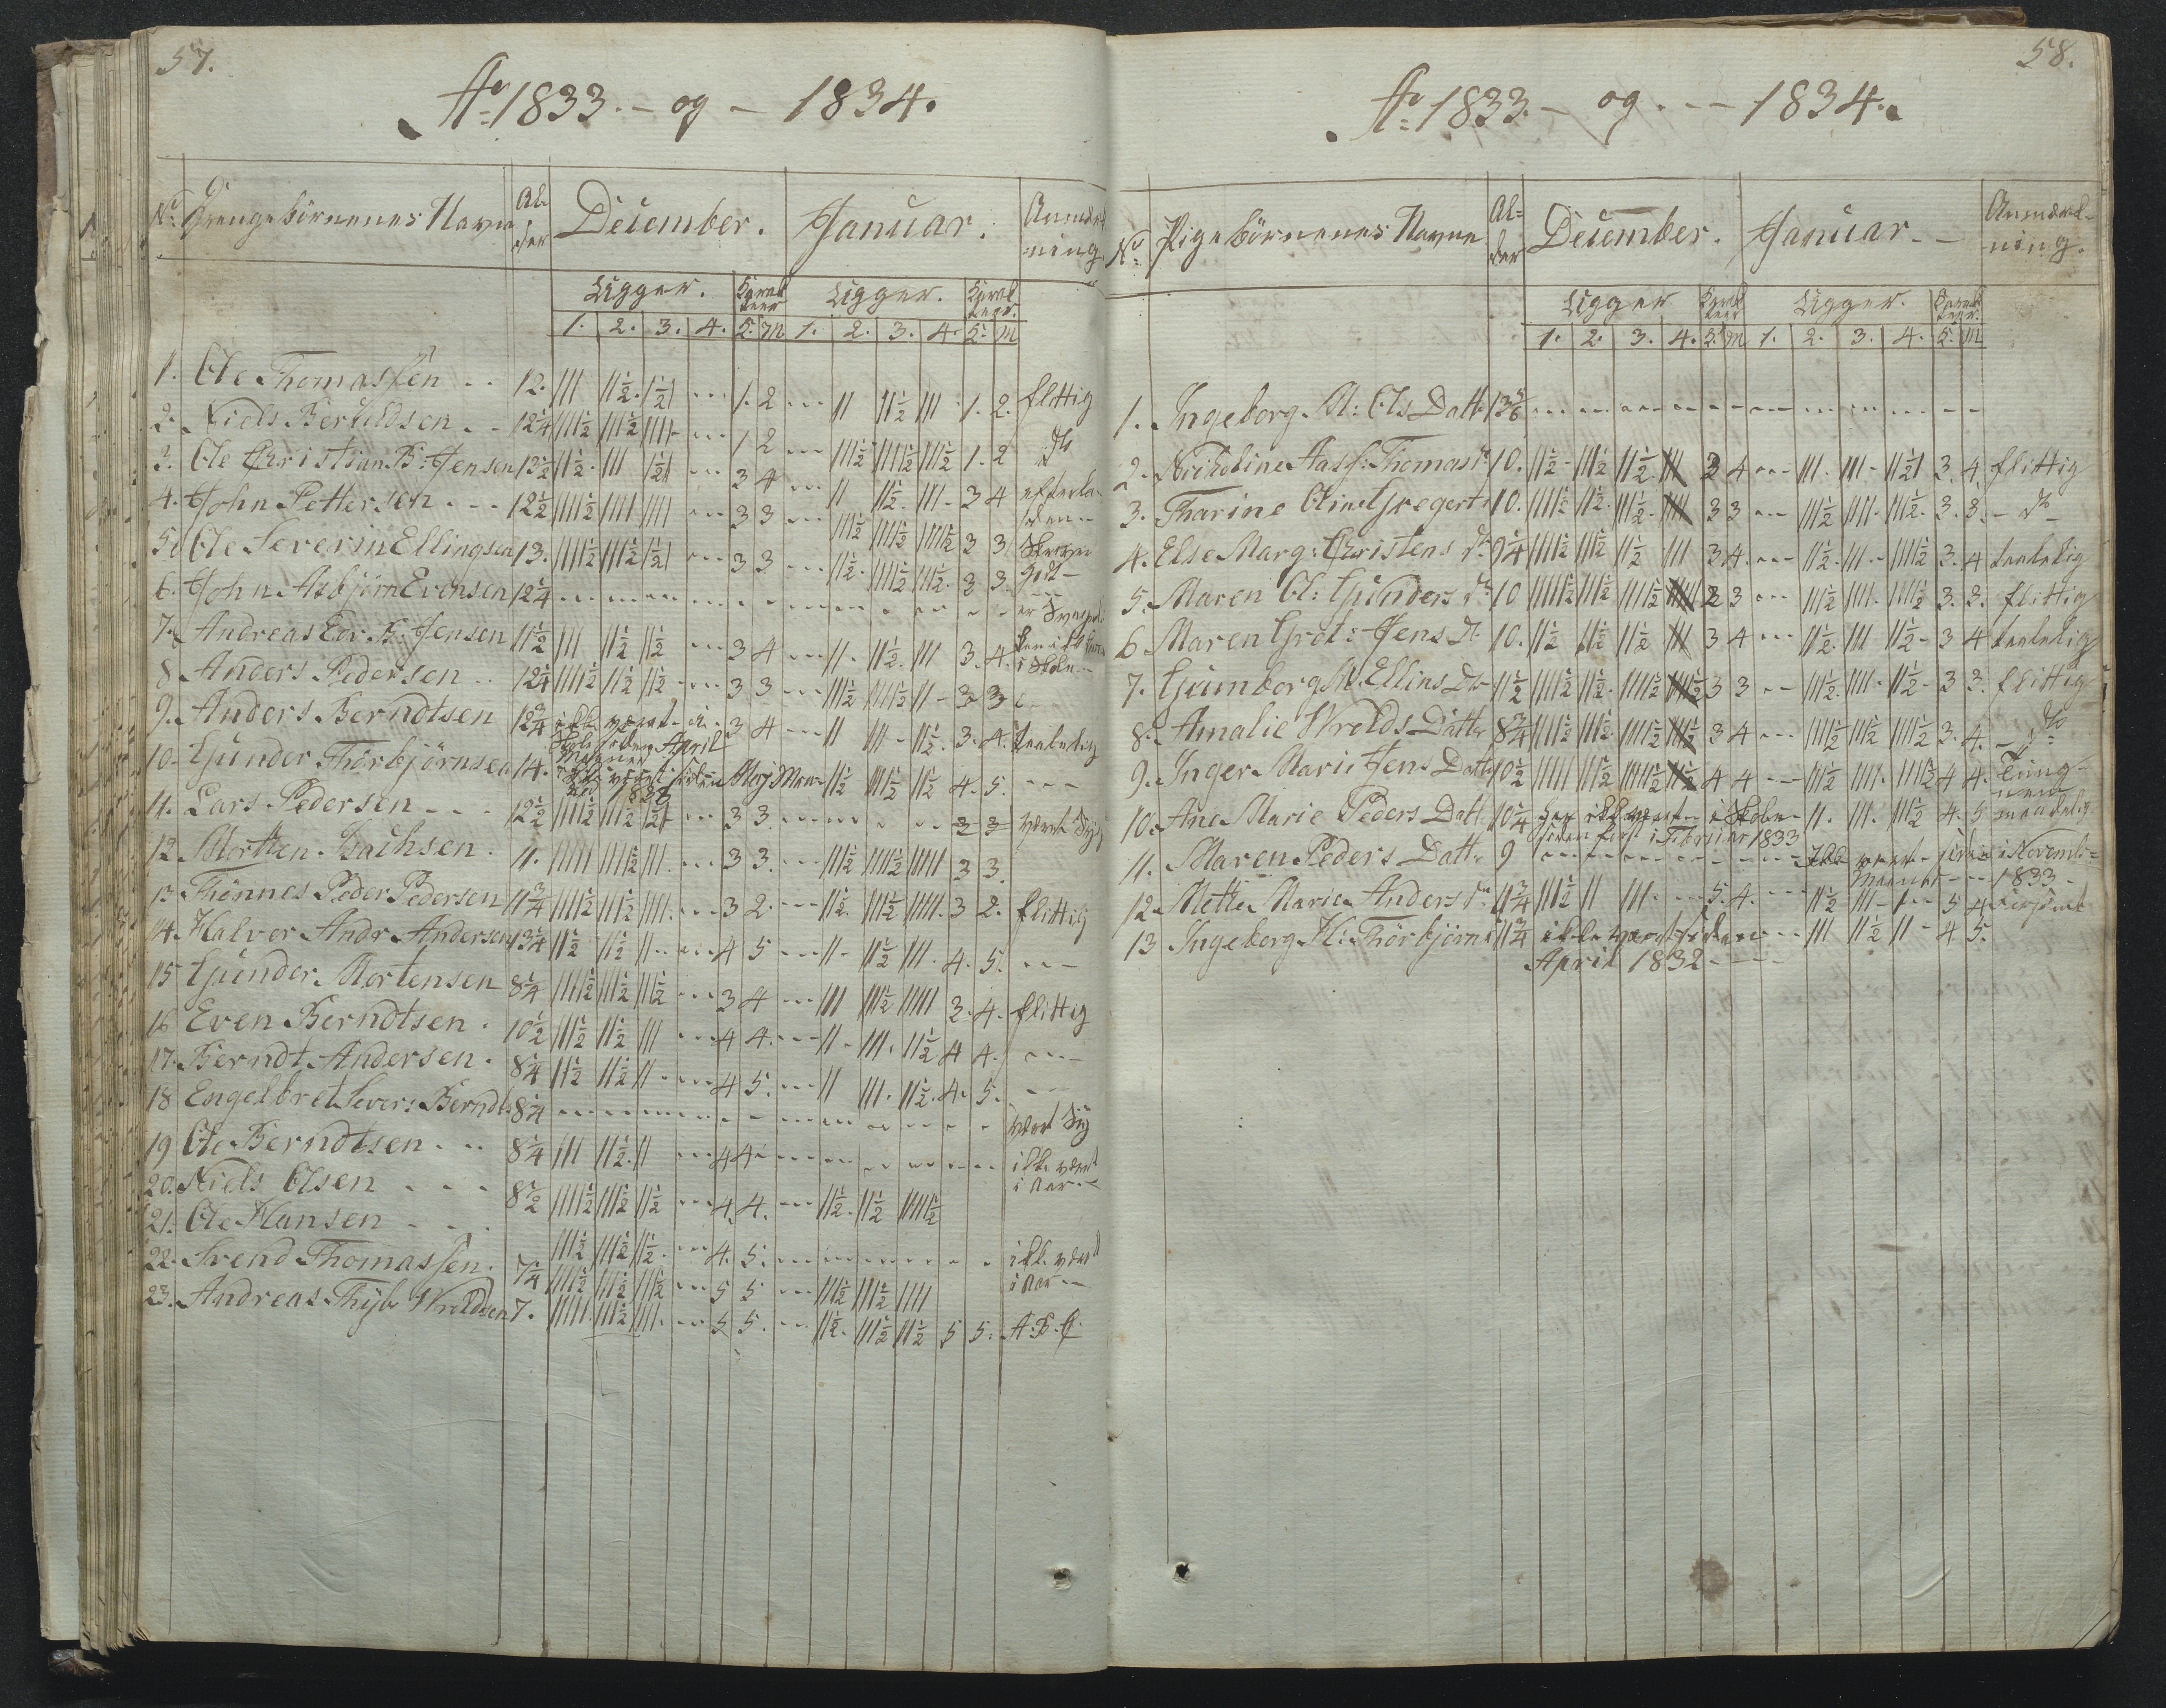 57.
Ao 1833. - og - 1834.
No Drengebörnenes Navne Al-der December. Januar. Anmærkning.
Ugger. Karakteer Ugger. Karakteer.
1. 2. 3. 4. S. M 1. 2. 3. 4. S. M
1. Ole Thomassen 12. III II½ I½I 1. 2 II II½ III 1. 2. flittig
2. Niels Berthldsen 12¼ III½ III½ IIII 1 2 III½ IIII½ III½ 1. 2 do
3. Ole Christian B. Jensen 13½ II½ III 3 4 II II½ III 3 4
4. John Pettersen 12½ IIII½ IIII IIII 3 3 III½ IIII½ IIII½ 3 3
5. Ole Severin Ellingsen 13. IIII½ III½ 3 3 II½ IIII½ III½ 3 3. godt
6. John Asbjörn Evensen 12¼
7. Andreas Edv. B. Jensen 11½ III II½ II½ 3 4 II II½ III 3. 4. i Skolen
8 Anders Pedersen 12¼ IIII½ II½ II½ 3 3 III½ IIII½ II 3 3
9. Anders Berndtsen 12¾ ikke været i Skole siden April Maaned 3 4 II III II½ 3. 4. taalelig
10. Gunder Thorbjörnsen 14. ikke været siden Maj Maaned 1833 II½ III½ II½ 4. 5.
11. Lars Pedersen 12½ IIII½ III½ 3 3 3 3 været Syg
12 Mortten Isachsen 11. IIIII IIII½ III 3 3 III½ IIII½ IIIII 3 3.
13 Thönnes Peder Pedersen 11¾ IIII½ III½ IIII 3 2. II½ III½ IIIII 3 2. flittig
14. Halvor Andr Andersen 13¼ II½ II½ II 4 5 II II½ III 4. 5.
15 Gunder Mortensen 8¼ IIII½ III½ III½ 3 4 III III½ IIIII 3. 4. flittig
16 Even Berndtsen 10½ III½ II½ III 4 4. II III II½ 4 4.
17. Berndt Andersen 8¼ II½ II½ II 4 5. II III. II½ 4. 5.
18 Engelbret Sever: Berndts 8¼ været Syg
19 Ole Berndtsen 8¼ III II½ II 4 4 ikke været i Aar
20. Niels Olsen 8½ IIII½ III½ II½ 4. 4. II½ II½ IIII½
21. Ole Hansen III½ III½ II½ 4. 5. ikke været i Aar
22. Svend Thomassen 7¼ IIII½ III½ III½ 5 5 III½ III½ IIII
23. Andreas Thÿb Wroldsen 7. IIIII III½ IIII 5 5. II½ III½ II½ 5 5. A. B. C
58.
Ao 1833. - og - 1834.
No Pigebörnenes Navne Al-der December. Januar Anmærkning.
Ugger Karakteer Ugger. Karakteer.
1. 2. 3. 4. S. M 1. 2. 3. 4. S. M
1. Ingeborg A: Ols Datt
2. Nicholine Aass: Thomas Dr 10. II½ III½ II½ III 3 4 III. III II½I 3. 4. flittig
3. Tharine Oline Gregerts 10. IIII½ II½ III½ IIII 3 3 III½ IIII III½ 3. 3. do
4. Else Marg: Christens Dr 9¼ IIII½ III½ II½ III 3 4 II½ III IIII½ 3. 4 taalelig
5. Maren Ol: Gunders Dr 10 IIIII½ III½ IIII½ 3 3 III½ IIII IIII½ 3. 3. flittig
6 Maren Gret: Jens Dr 10. II½ II½ II½ III 3 4 II½ III II½ 3 4 taalelig
7. Gunnborg M. Ellins Dtr 11½ IIII½ II½ IIII½ 3 3 III½ IIII II½ 3 3. flittig
8. Amalie Wrolds Datter 8¾ IIII½ III½ IIII½ 3 4 IIII½ III½ IIII½ 3. 4. do
9. Inger Marie Jens Datter 10½ IIIII III½ IIIII½ II½ 4 4 III½ IIII IIII½ 4 4. tung-nem
10. Ane Marie Peders Datt. 10¼ har ikke været i Skolen siden sist i Februar 1833 II. III. III½ 4. 5 maadelig
11. Maren Peders Datt. 9 Ikke været siden i Novemb: Maaned 1833
12. Mette Marie Anders Dr 11¾ III½ II III 5. 4. II½ III 5 4
13 Ingeborg K: Thörbjörns 11¾ ikke været siden April 1832 III II½ II 4 5.